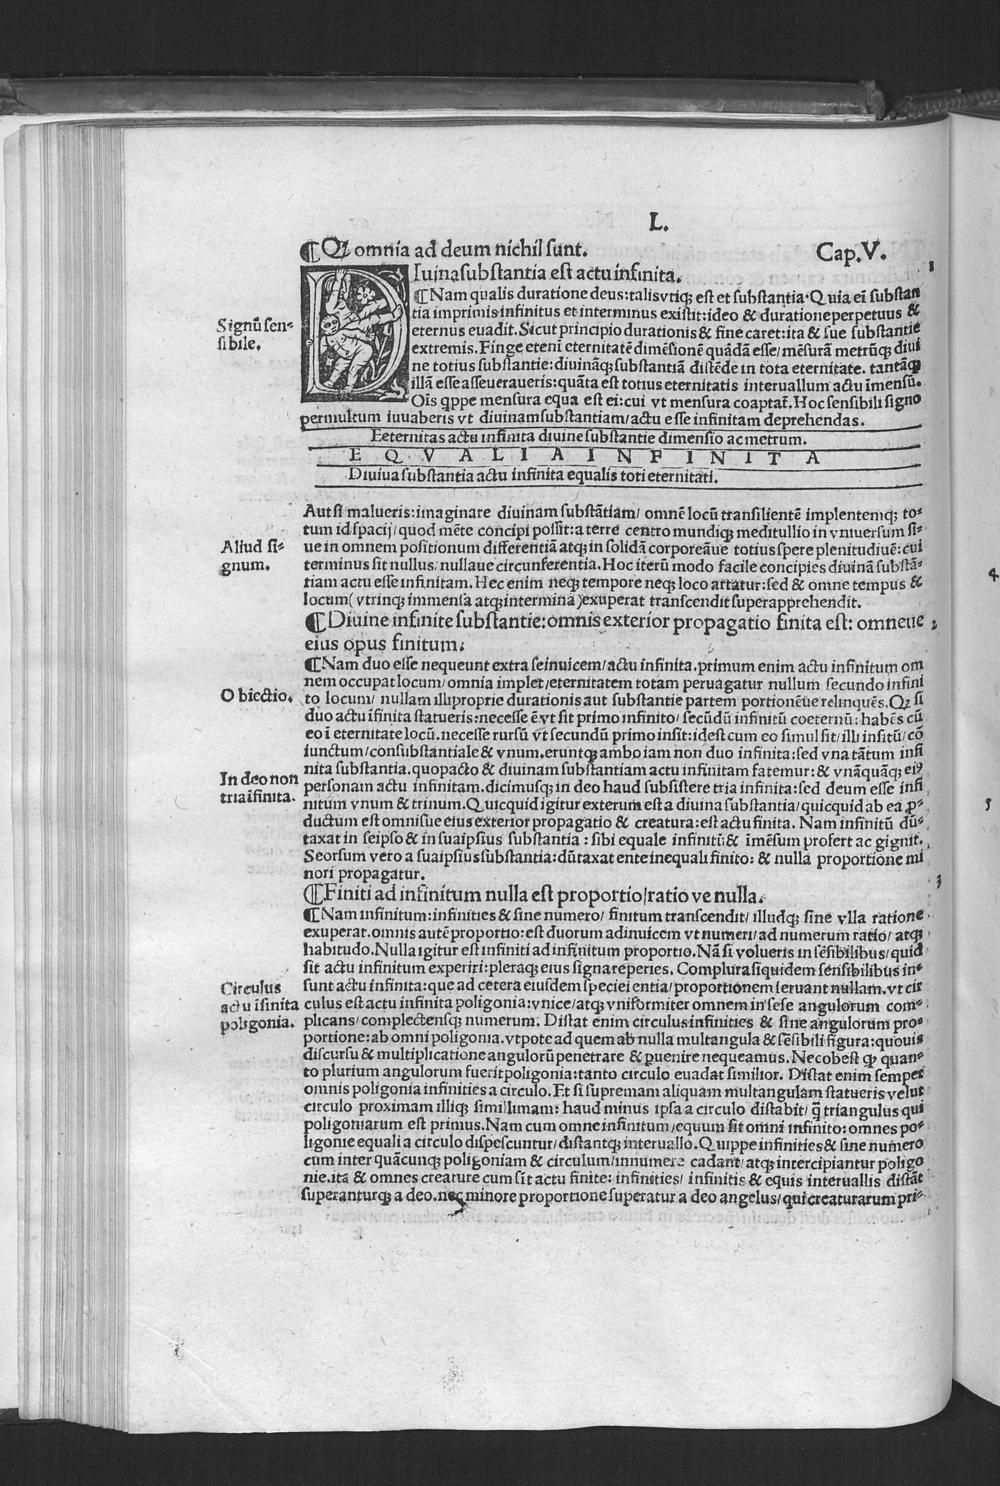 L.
¶ Qꝫ omnia ad deum nichil sunt. Cap.V.
DIuina substantia est actu infinita. 1
¶ Nam qualis duratione deus: talis vtiqꝫ est et substantia. Quia eĩ substan
tia imprimis infinitus et interminus existit: ideo & duratione perpetuus &
Signũ sen=
sibile.
eternus euadit. Sicut principio durationis & fine caret: ita & sue substantie
extremis. Finge etenĩ eternitatẽ dimẽsionẽ quãdã esse/ mẽsurã metrũqꝫ diui
ne totius substantie: diuinãqꝫ substantiã distẽde in tota eternitate. tantãqꝫ
illã esse asseueraueris: quãta est totius eternitatis interuallum actu ĩmensũ.
Oĩs qꝓpe mensura equa est ei: cui vt mensura coaptat̃. Hoc sensibili signo
permultum iuuaberis vt diuinam substantiam/ actu esse infinitam deprehendas.
Eeternitas actu infinita diuine substantie dimensio ac metrum.
E Q V A L I A I N F I N I T A
Diuiua substantia actu infinita equalis toti eternitati.
Aut si malueris: imaginare diuinam substãtiam/ omnẽ locũ transilientẽ implentemqꝫ to=
tum id spacij/ quod mẽte concipi possit: a terre centro mundiqꝫ meditullio in vniuersum si=
Aliud si=
gnum.
ue in omnem positionum differentiã atqꝫ in solidã corporeãue totius spere plenitudiuẽ: cui
terminus sit nullus/ nullaue circunferentia. Hoc iterũ modo facile concipies diuinã substã=
tiam actu esse infinitam. Hec enim neqꝫ tempore neqꝫ loco artatur: sed & omne tempus &
locum (vtrinqꝫ immensa atqꝫ intermina) exuperat transcendit superapprehendit.
¶ Diuine infinite substantie: omnis exterior propagatio finita est: omneue 2
eius opus finitum.
¶ Nam duo esse nequeunt extra seinuicem/ actu infinita. primum enim actu infinitum om
nem occupat locum/ omnia implet/ eternitatem totam peruagatur nullum secundo infini
Obiectio.
to locum/ nullam illi proprie durationis aut substantie partem portionẽue relinquẽs. Qꝫ si
duo actu ĩfinita statueris: necesse ẽ vt sit primo infinito/ secũdũ infinitũ coeternũ: habẽs cũ
eo ĩ eternitate locũ. necesse rursũ vt secundũ primo insit: id est cum eo simul sit/ illi insitũ/ cõ
iunctum/ consubstantiale & vnum. eruntqꝫ ambo iam non duo infinita: sed vna tãtum infi
In deo non
tria ĩfinita.
nita substantia. quo pacto & diuinam substantiam actu infinitam fatemur: & vnãquãqꝫ eiꝰ
personam actu infinitam. dicimusqꝫ in deo haud subsistere tria infinita: sed deum esse infi
nitum vnum & trinum. Quicquid igitur exterum est a diuina substantia/ quicquid ab ea ꝓ=
ductum est omnisue eius exterior propagatio & creatura: est actu finita. Nam infinitũ dũ=
taxat in seipso & in suaipsius substantia: sibi equale infinitũ & ĩmẽsum profert ac gignit.
Seorsum vero a suaipsius substantia: dũtaxat ente inequali finito: & nulla proportione mi
nori propagatur.
¶ Finiti ad infinitum nulla est proportio/ ratio ve nulla. 3
¶ Nam infinitum: infinities & sine numero/ finitum transcendit/ illudqꝫ sine vlla ratione
exuperat. omnis autẽ proportio: est duorum adinuicem vt numeri/ ad numerum ratio/ atqꝫ
habitudo. Nulla igitur est infiniti ad infinitum proportio. Nã si volueris in sẽsibilibus/ quid
sit actu infinitum experiri: pleraqꝫ eius signa reperies. Complura siquidem sensibilibus in=
Circulus
actu ĩfinita
poligonia.
sunt actu infinita: que ad cetera eiusdem speciei entia/ proportionem seruant nullam. vt cir
culus est actu infinita poligonia: vnice/ atqꝫ vniformiter omnem in sese angulorum com=
plicans/ complectensqꝫ numerum. Distat enim circulus infinities & sine angulorum pro=
portione: ab omni poligonia. vtpote ad quem ab nulla multangula & sẽsibili figura: quouis
discursu & multiplicatione angulorũ penetrare & ꝑuenire nequeamus. Nec obest ꝙ quan=
to plurium angulorum fuerit poligonia: tanto circulo euadat similior. Distat enim semper
omnis poligonia infinities a circulo. Et si supremam aliquam multangulam statueris velut
circulo proximam illiqꝫ simillimam: haud minus ipsa a circulo distabit/ q̃ triangulus qui
poligoniarum est primus. Nam cum omne infinitum/ equum sit omni infinito: omnes po=
ligonie equali a circulo dispescuntur/ distantqꝫ interuallo. Quippe infinities & sine numero
cum inter quãcunqꝫ poligoniam & circulum/ innumere cadant/ atqꝫ intercipiantur poligo
nie. ita & omnes creature cum sit actu finite: infinities/ infinitis & equis interuallis distãt
superanturqꝫ a deo. nec minore proportione superatur a deo angelus/ qui creaturarum pri=
4
5